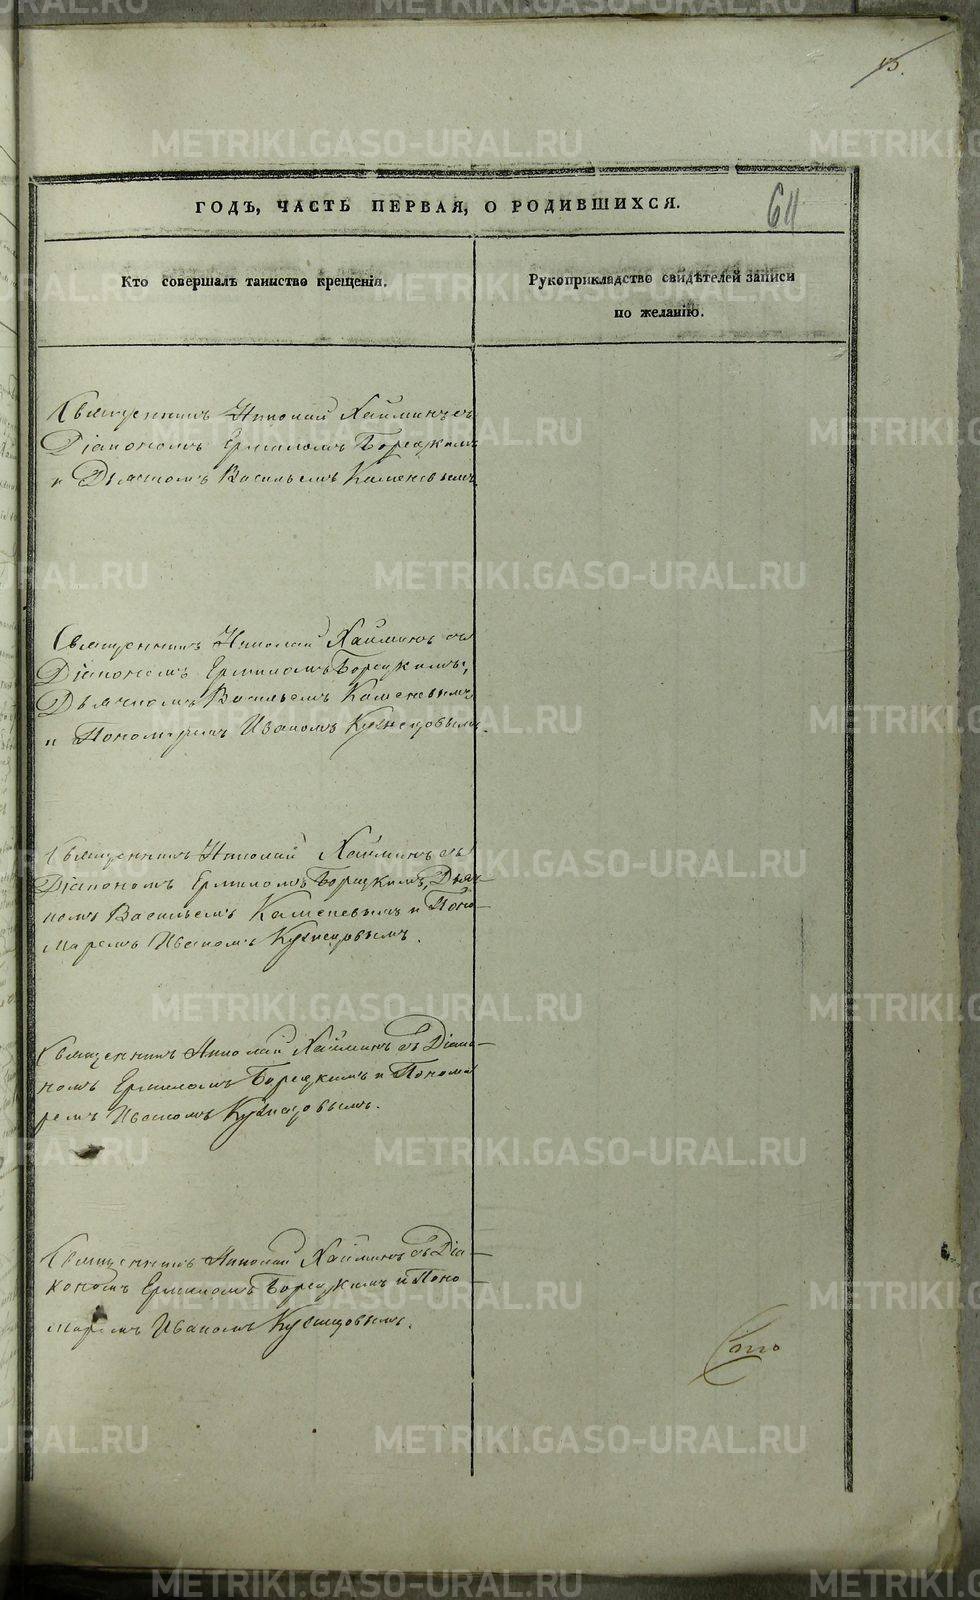 METRIKI.GASO-URAL.RU
13.
ГОДЪ, ЧАСТЬ ПЕРВАЯ, О РОДИВШИХСЯ.
Кто совершалъ таинство крещенія.
Рукоприкладство свидѣтелей записи
по желанію.
Священникъ Николай Хайминъ съ
Діакономъ Ермиломъ Борецкимъ
и Дьячкомъ Васильемъ Каменевымъ
Священникъ Николай Хайминъ съ
Діакономъ Ермиломъ Борецкимъ,
Дьячкомъ Васильемъ Каменевымъ
и Пономаремъ Иваномъ Кузнецовымъ.
Священникъ Николай Хайминъ съ
Діакономъ Ермиломъ Борецкимъ, Дьяч-
комъ Васильемъ Каменевымъ и Поно-
маремъ Иваномъ Кузнецовымъ.
Священникъ Николай Хайминъ съ Діаko-
номъ Ермиломъ Борецкимъ и Понома
ремъ Иваномъ Кузнецовымъ.
Священникъ Николай Хайминъ съ Діа-
кономъ Ермиломъ Борецкимъ и Поно-
маремъ Иваномъ Кузнецовымъ.